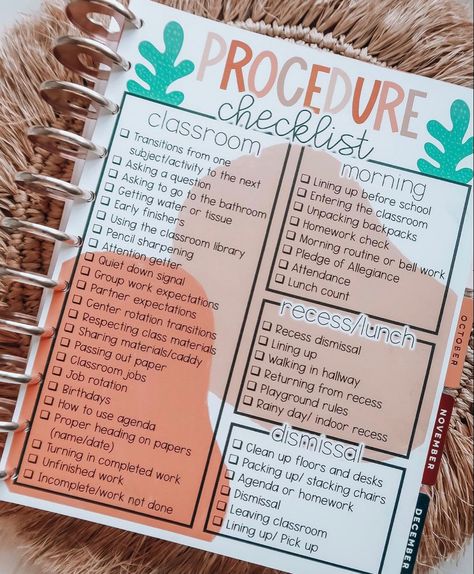 PROCEDURE
checklist
classroom
Transitions from one
subject/activity to the next
Asking a question
Asking to go to the bathroom
Getting water or tissue
Early finishers
Using the classroom library
Pencil sharpening
Attention getter
Quiet down signal
Group work expectations
Partner expectations
Center rotation transitions
Respecting class materials
Sharing materials/caddy
Passing out paper
Classroom jobs
Job rotation
Birthdays
How to use agenda
Proper heading on papers
(name/date)
Turning in completed work
Unfinished work
Incomplete/work not done
morning
Lining up before school
Entering the classroom
Unpacking backpacks
Homework check
Morning routine or bell work
Pledge of Allegiance
Attendance
Lunch count
recess/lunch
Recess dismissal
Lining up
Walking in hallway
Returning from recess
Playground rules
Rainy day/ indoor recess
dismissal
Clean up floors and desks
Packing up/ stacking chairs
Agenda or homework
Dismissal
Leaving classroom
Lining up/ Pick up
OCTOBER
NOVEMBER
DECEMBER